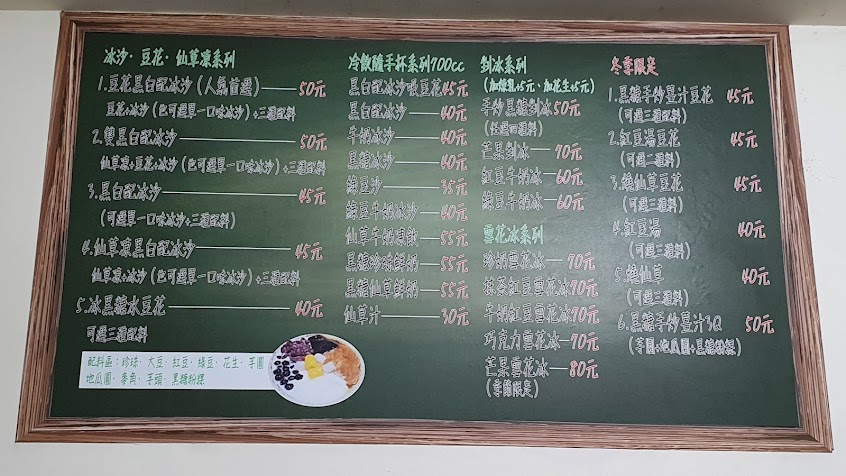 冰沙·豆花·仙草凍系列
1.豆花黑白配冰沙(人氣首選)——50元
豆花+冰沙(也可選單一口味冰沙)+三種配料
2.雙黑白配冰沙——50元
仙草凍+豆花+冰沙(也可選單一口味冰沙)+三種配料
3.黑白配冰沙——45元
(可選單一口味冰沙+三種配料)
4.仙草凍黑白配冰沙——45元
仙草凍+冰沙(也可選單一口味冰沙)+三種配料
5.冰黑糖水豆花——40元
可選三種配料
配料區:珍珠·大豆·紅豆·綠豆·花生·芋圓
地瓜圓·麥角·芋頭·黑糖粉粿
冷飲隨手杯系列700cc
黑白配冰沙吸豆花45元
黑白配冰沙——40元
牛奶冰沙——40元
黑糖冰沙——40元
綠豆沙——35元
綠豆牛奶冰沙—40元
仙草牛奶凍飲—55元
黑糖珍珠鮮奶—55元
黑糖仙草鮮奶—55元
仙草汁——30元
剉冰系列
(加煉乳+5元·加花生+5元)
手炒黑糖剉冰50元
(任選四種料)
芒果剉冰—70元
紅豆牛奶冰—60元
綠豆牛奶冰—60元
雪花冰系列
珍奶雪花冰—70元
抹茶紅豆雪花冰70元
牛奶紅豆雪花冰70元
巧克力雪花冰—70元
芒果雪花冰—80元
(季節限定)
冬季限定
1.黑糖手炒薑汁豆花 45元
(可選三種料)
2.紅豆湯豆花 45元
(可選二種料)
3.燒仙草豆花 45元
(可選三種料)
4.紅豆湯 40元
(可選三種料)
5.燒仙草 40元
(可選三種料)
6.黑糖手炒薑汁3Q 50元
(芋圓+地瓜圓+黑糖粉粿)